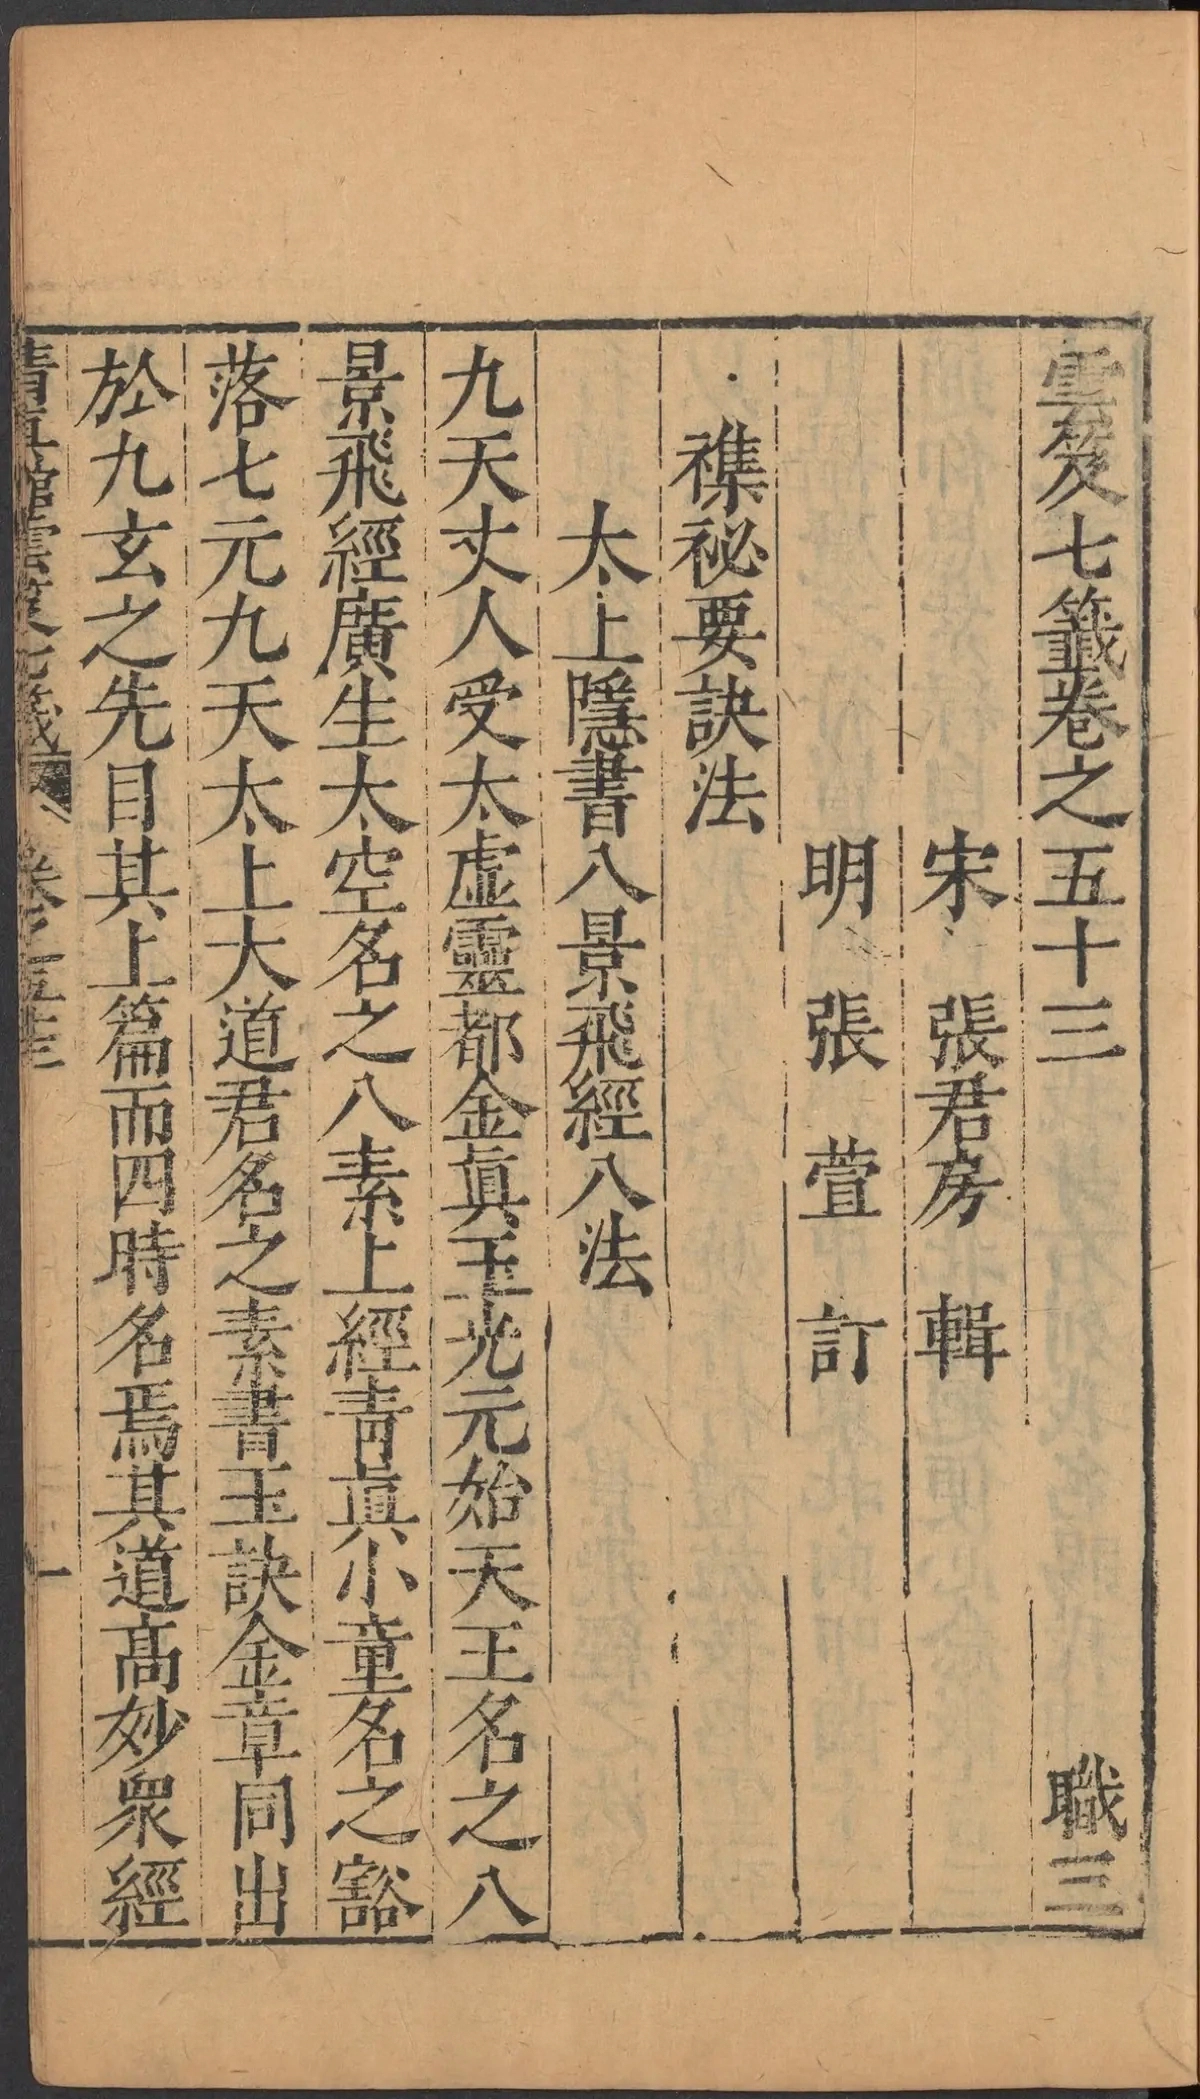 雲笈七籤卷之五十三 職三
宋 張君房 輯
明 張萱 訂
襍祕要訣法
太上隱書八景飛經八法
九天丈人受太虛靈都金眞玉光元始天王名之八
景飛經廣生太空名之八素上經靑眞小童名之豁
落七元九天太上大道君名之素書玉訣金章同出
於九玄之先目其上篇而四時名焉其道高妙衆經
清真館雲笈七籤 卷之五十三 一